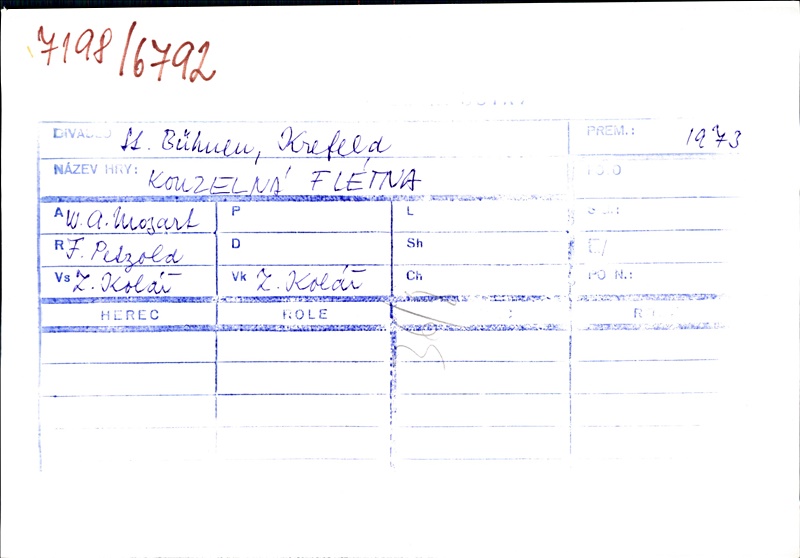 7198/6792
DIVADLO St. Bühnen, Krefeld PREM.: 1973
NÁZEV HRY: KOUZELNÁ FLÉTNA
A W. A. Mozart P L
R F. Petzold D Sh
Vs Z. Kolář Vk Z. Kolář Ch PO N.:
HEREC ROLE